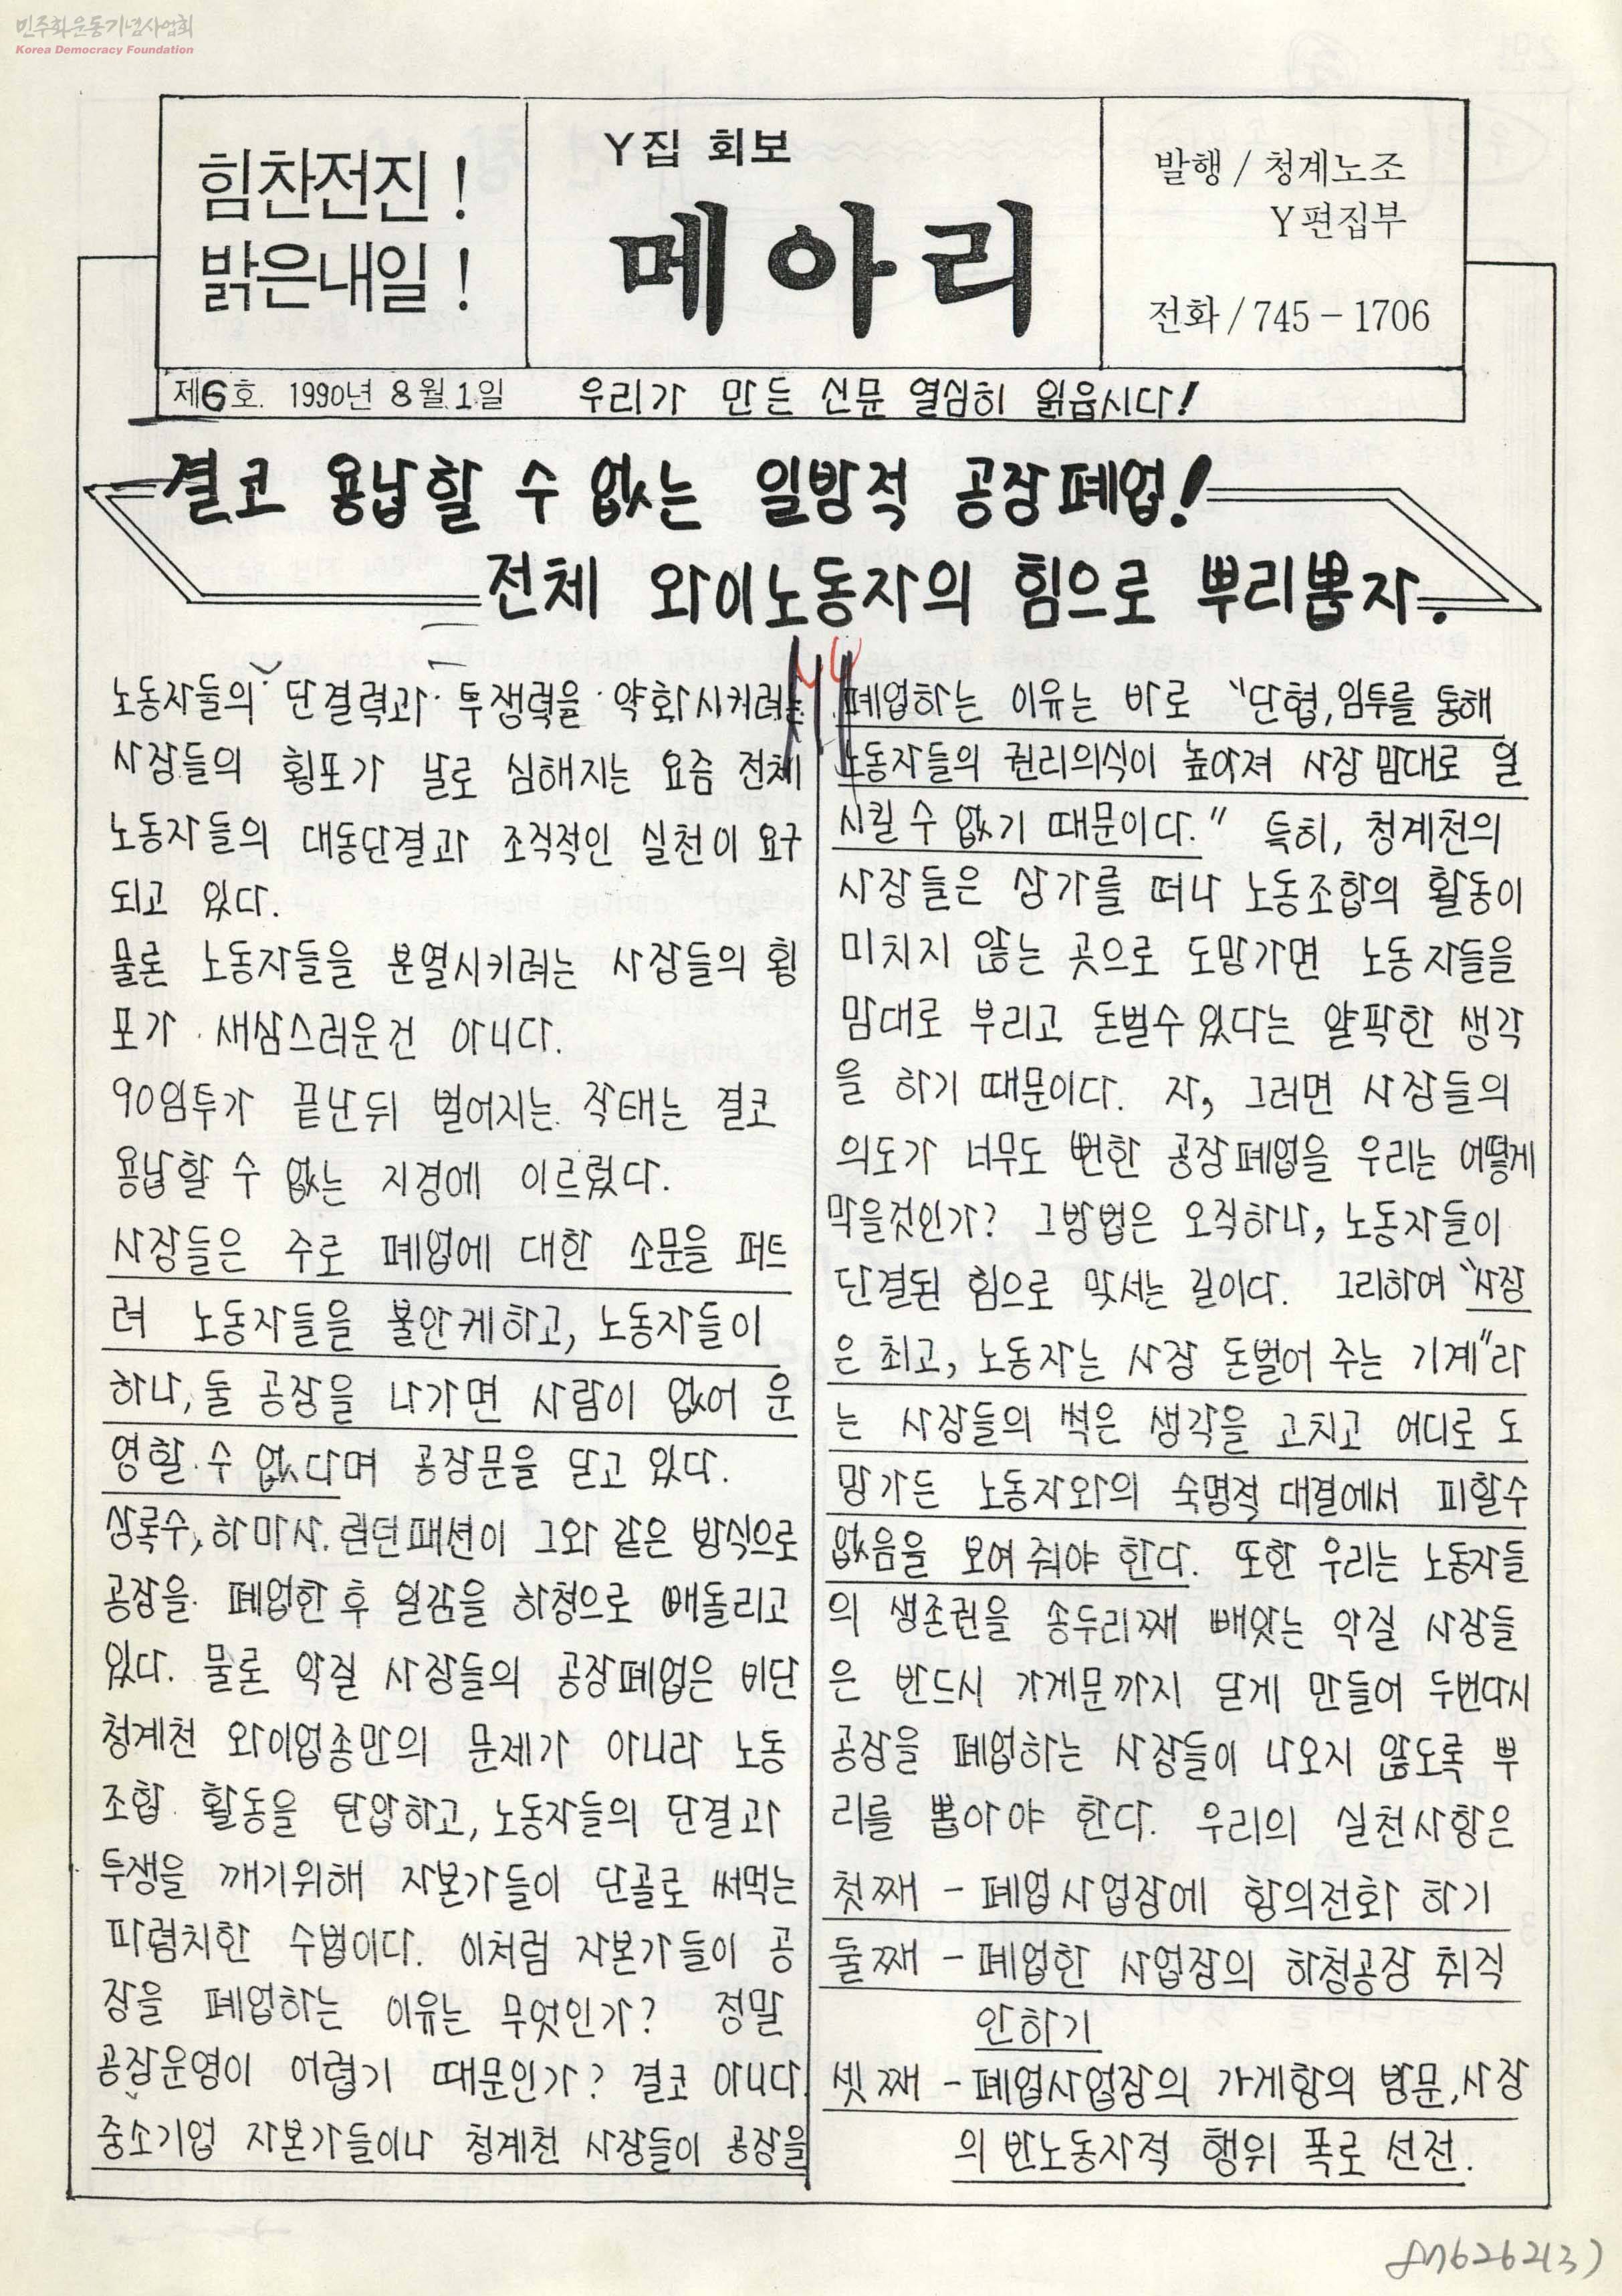 민주화운동기념사업회
Korea Democracy Foundation
힘찬전진!
밝은내일!
Y집 회보
메아리
발행 / 청계노조
Y편집부
전화 / 745 - 1706
제6호. 1990년 8월 1일 우리가 만든 신문 열심히 읽읍시다!
결코 용납할 수 없는 일방적 공장폐업!
전체 와이노동자의 힘으로 뿌리뽑자.
노동자들의 단결력과 투쟁력을 약화시키려는
사장들의 횡포가 날로 심해지는 요즘 전체
노동자들의 대동단결과 조직적인 실천이 요구
되고 있다.
물론 노동자들을 분열시키려는 사장들의 횡
포가 새삼스러운건 아니다.
90임투가 끝난뒤 벌어지는 작태는 결코
용납할 수 없는 지경에 이르렀다.
사장들은 주로 폐업에 대한 소문을 퍼트
려 노동자들을 불안케하고, 노동자들이
하나, 둘 공장을 나가면 사람이 없어 운
영할 수 없다며 공장문을 닫고 있다.
상록수, 하마사. 런던패션이 그와 같은 방식으로
공장을 폐업한 후 일감을 하청으로 빼돌리고
있다. 물론 악질 사장들의 공장폐업은 비단
청계천 와이업종만의 문제가 아니라 노동
조합 활동을 탄압하고, 노동자들의 단결과
투쟁을 깨기위해 자본가들이 단골로 써먹는
파렴치한 수법이다. 이처럼 자본가들이 공
장을 폐업하는 이유는 무엇인가? 정말
공장운영이 어렵기 때문인가? 결코 아니다.
중소기업 자본가들이나 청계천 사장들이 공장을
폐업하는 이유는 바로 "단협, 임투를 통해
노동자들의 권리의식이 높아져 사장 맘대로 일
시킬 수 없기 때문이다." 특히, 청계천의
사장들은 상가를 떠나 노동조합의 활동이
미치지 않는 곳으로 도망가면 노동자들을
맘대로 부리고 돈벌수 있다는 얄팍한 생각
을 하기 때문이다. 자, 그러면 사장들의
의도가 너무도 뻔한 공장폐업을 우리는 어떻게
막을것인가? 그방법은 오직하나, 노동자들이
단결된 힘으로 맞서는 길이다. 그리하여 "사장
은 최고, 노동자는 사장 돈벌어 주는 기계"라
는 사장들의 썩은 생각을 고치고 어디로 도
망가든 노동자와의 숙명적 대결에서 피할수
없음을 보여 줘야 한다. 또한 우리는 노동자들
의 생존권을 송두리째 빼앗는 악질 사장들
은 반드시 가게문까지 닫게 만들어 두번다시
공장을 폐업하는 사장들이 나오지 않도록 뿌
리를 뽑아야 한다. 우리의 실천사항은
첫째 - 폐업사업장에 항의전화 하기
둘째 - 폐업한 사업장의 하청공장 취직
안하기
셋째 - 폐업사업장의 가게항의 방문, 사장
의 반노동자적 행위 폭로 선전.